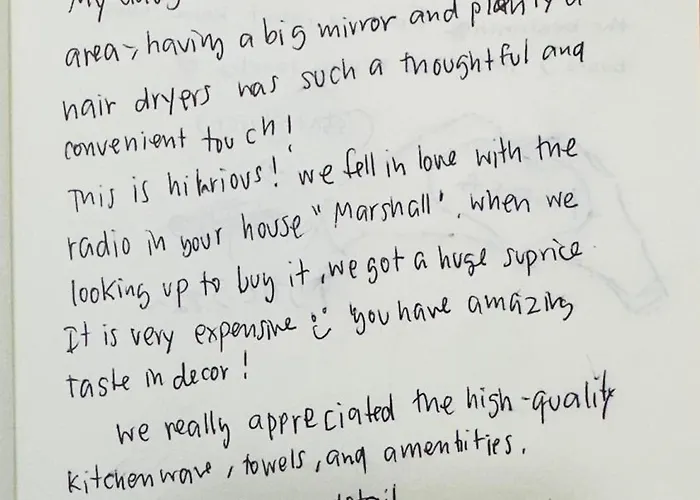 My
area, having a big mirror and plenty of
hair dryers has such a thoughtful and
convenient touch!
This is hilarious! we fell in love with the
radio in your house "Marshall". when we
looking up to buy it, we got a huge suprice.
It is very expensive :) you have amazing
taste in decor!
we really appreciated the high-quality
kitchenwave, towels, and amentities.
detail